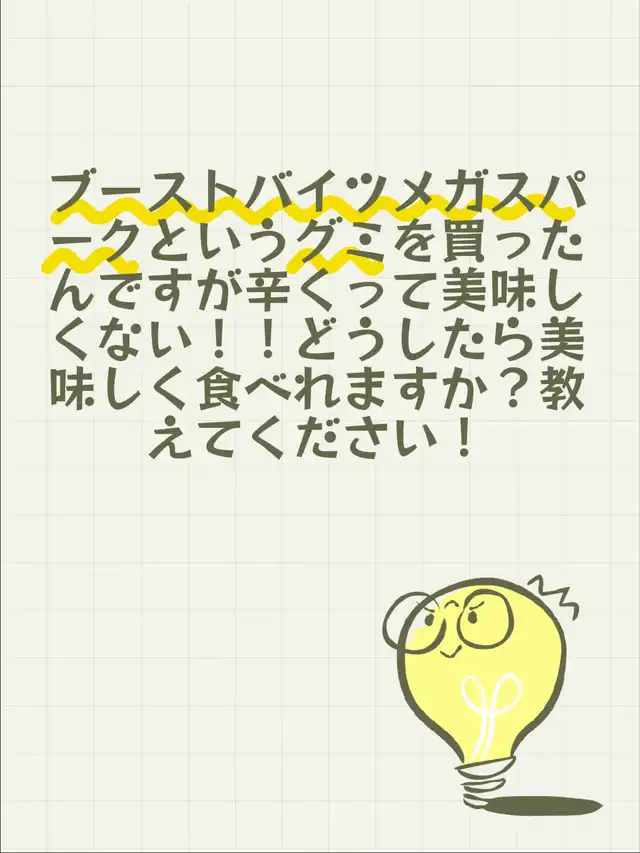 ブーストバイツメガスパ
ークというグミを買った
んですが辛くって美味し
くない！！どうしたら美
味しく食べれますか？教
えてください！